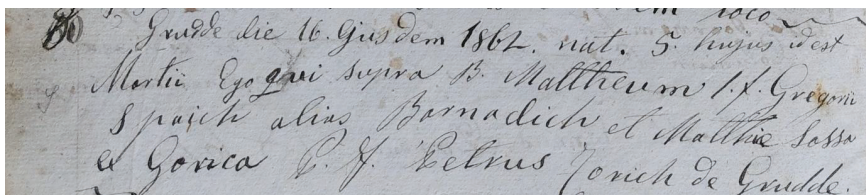 loco
Grudde die 16. Ejusdem 1862. nat. 5. hujus idest
Martii Ego qui supra B. Mattheum l. f. Gregorii
Spaich alias Barnadich et Matthie Sossa
ex Gorica P. f. Petrus Zorich de Grudde.